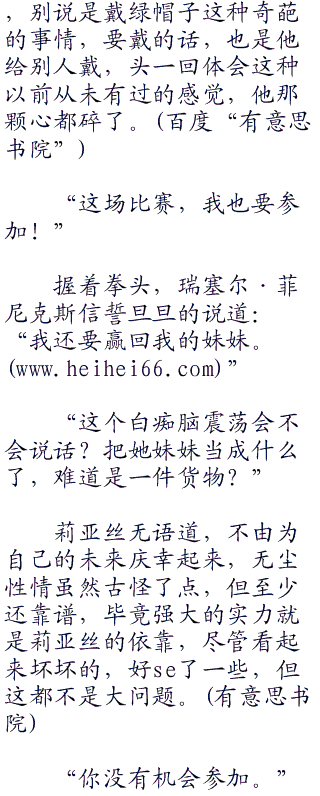 ，别说是戴绿帽子这种奇葩
的事情，要戴的话，也是他
给别人戴，头一回体会这种
以前从未有过的感觉，他那
颗心都碎了。(百度“有意思
书院”)
“这场比赛，我也要参
加！”
握着拳头，瑞塞尔·菲
尼克斯信誓旦旦的说道：
“我还要赢回我的妹妹。
(www.heihei66.com)”
“这个白痴脑震荡会不
会说话？把她妹妹当成什么
了，难道是一件货物？”
莉亚丝无语道，不由为
自己的未来庆幸起来，无尘
性情虽然古怪了点，但至少
还靠谱，毕竟强大的实力就
是莉亚丝的依靠，尽管看起
来坏坏的，好se了一些，但
这都不是大问题。(有意思书
院)
“你没有机会参加。”